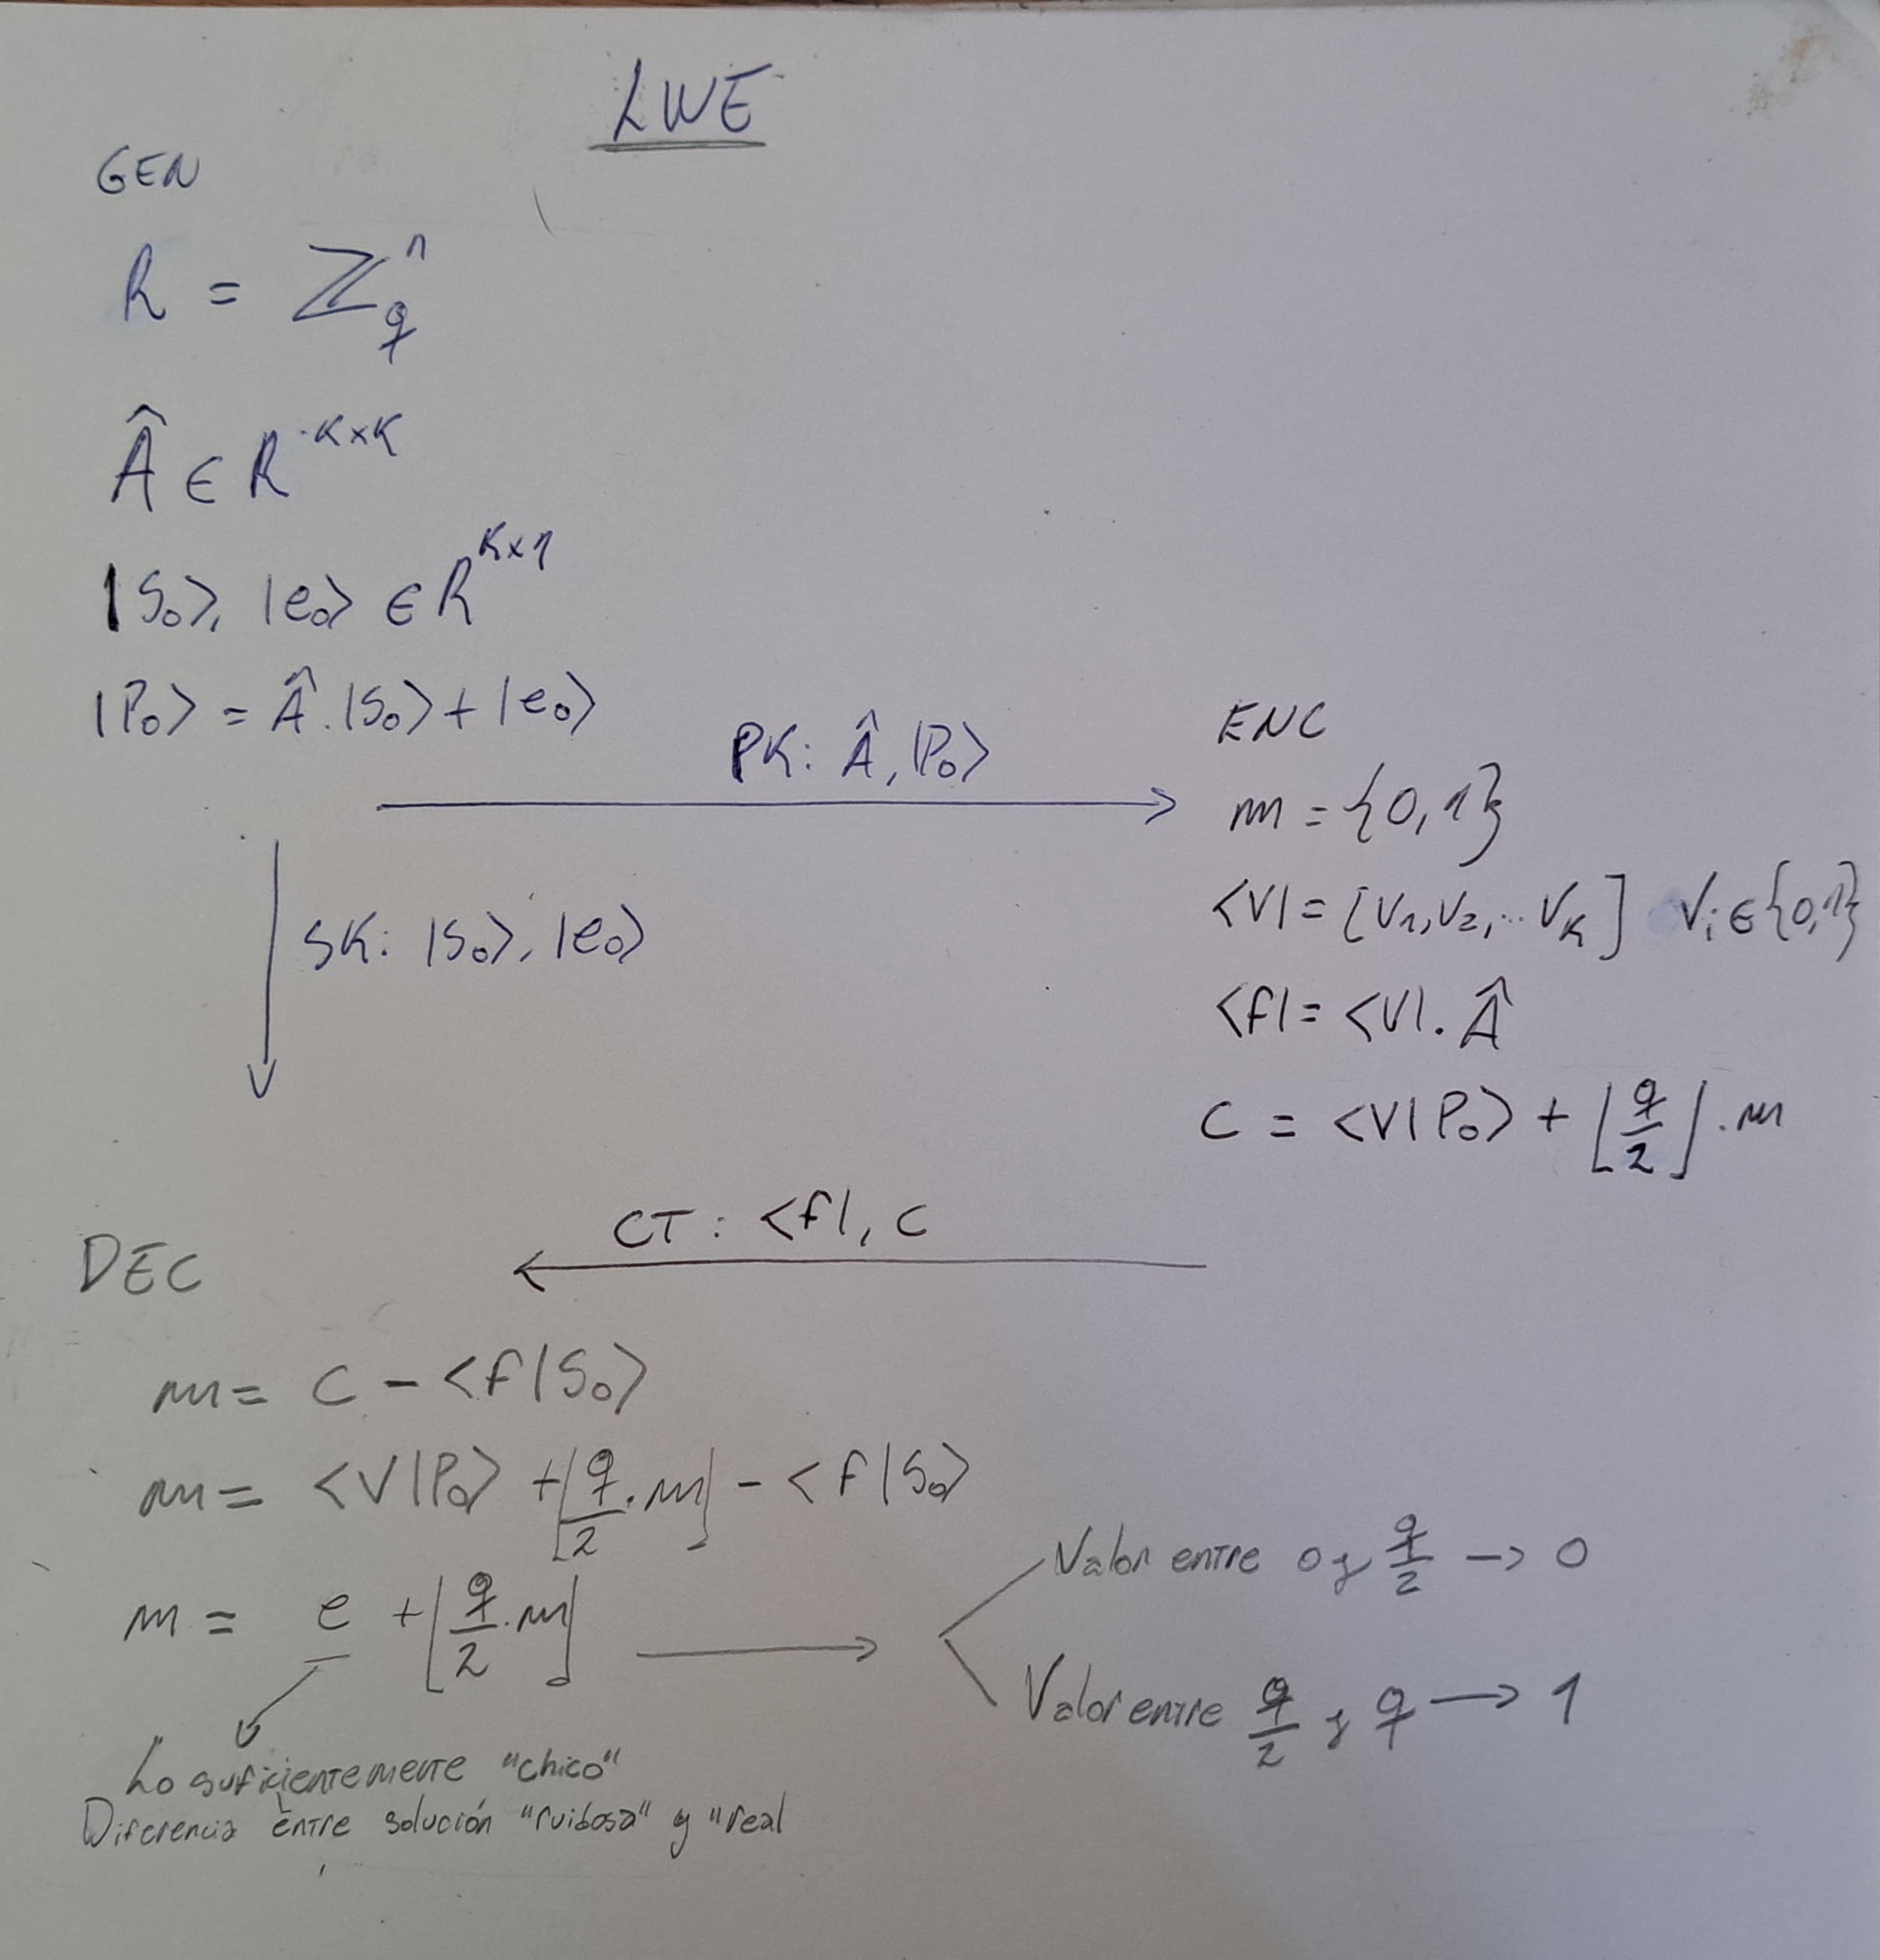 LWE
GEN
R = ℤ_q^n
Â ∈ R^{K×K}
|S₀⟩, |e₀⟩ ∈ R^{K×1}
|P₀⟩ = Â.|S₀⟩ + |e₀⟩
PK: Â, |P₀⟩
SK: |S₀⟩, |e₀⟩
ENC
m = {0,1}
<V| = [V₁,V₂,..V_K] V_i ∈ {0,1}
<f| = <V|. Â
C = <V|P₀⟩ + ⌊q/2⌋.m
CT: <f|, C
DEC
m = C - <f|S₀⟩
m = <V|P₀⟩ + ⌊q/2.m⌋ - <f|S₀⟩
m = e + ⌊q/2.m⌋
Valor entre 0 y q/2 → 0
Valor entre q/2 y q → 1
Lo suficientemente "chico"
Diferencia entre solución "ruidosa" y "real